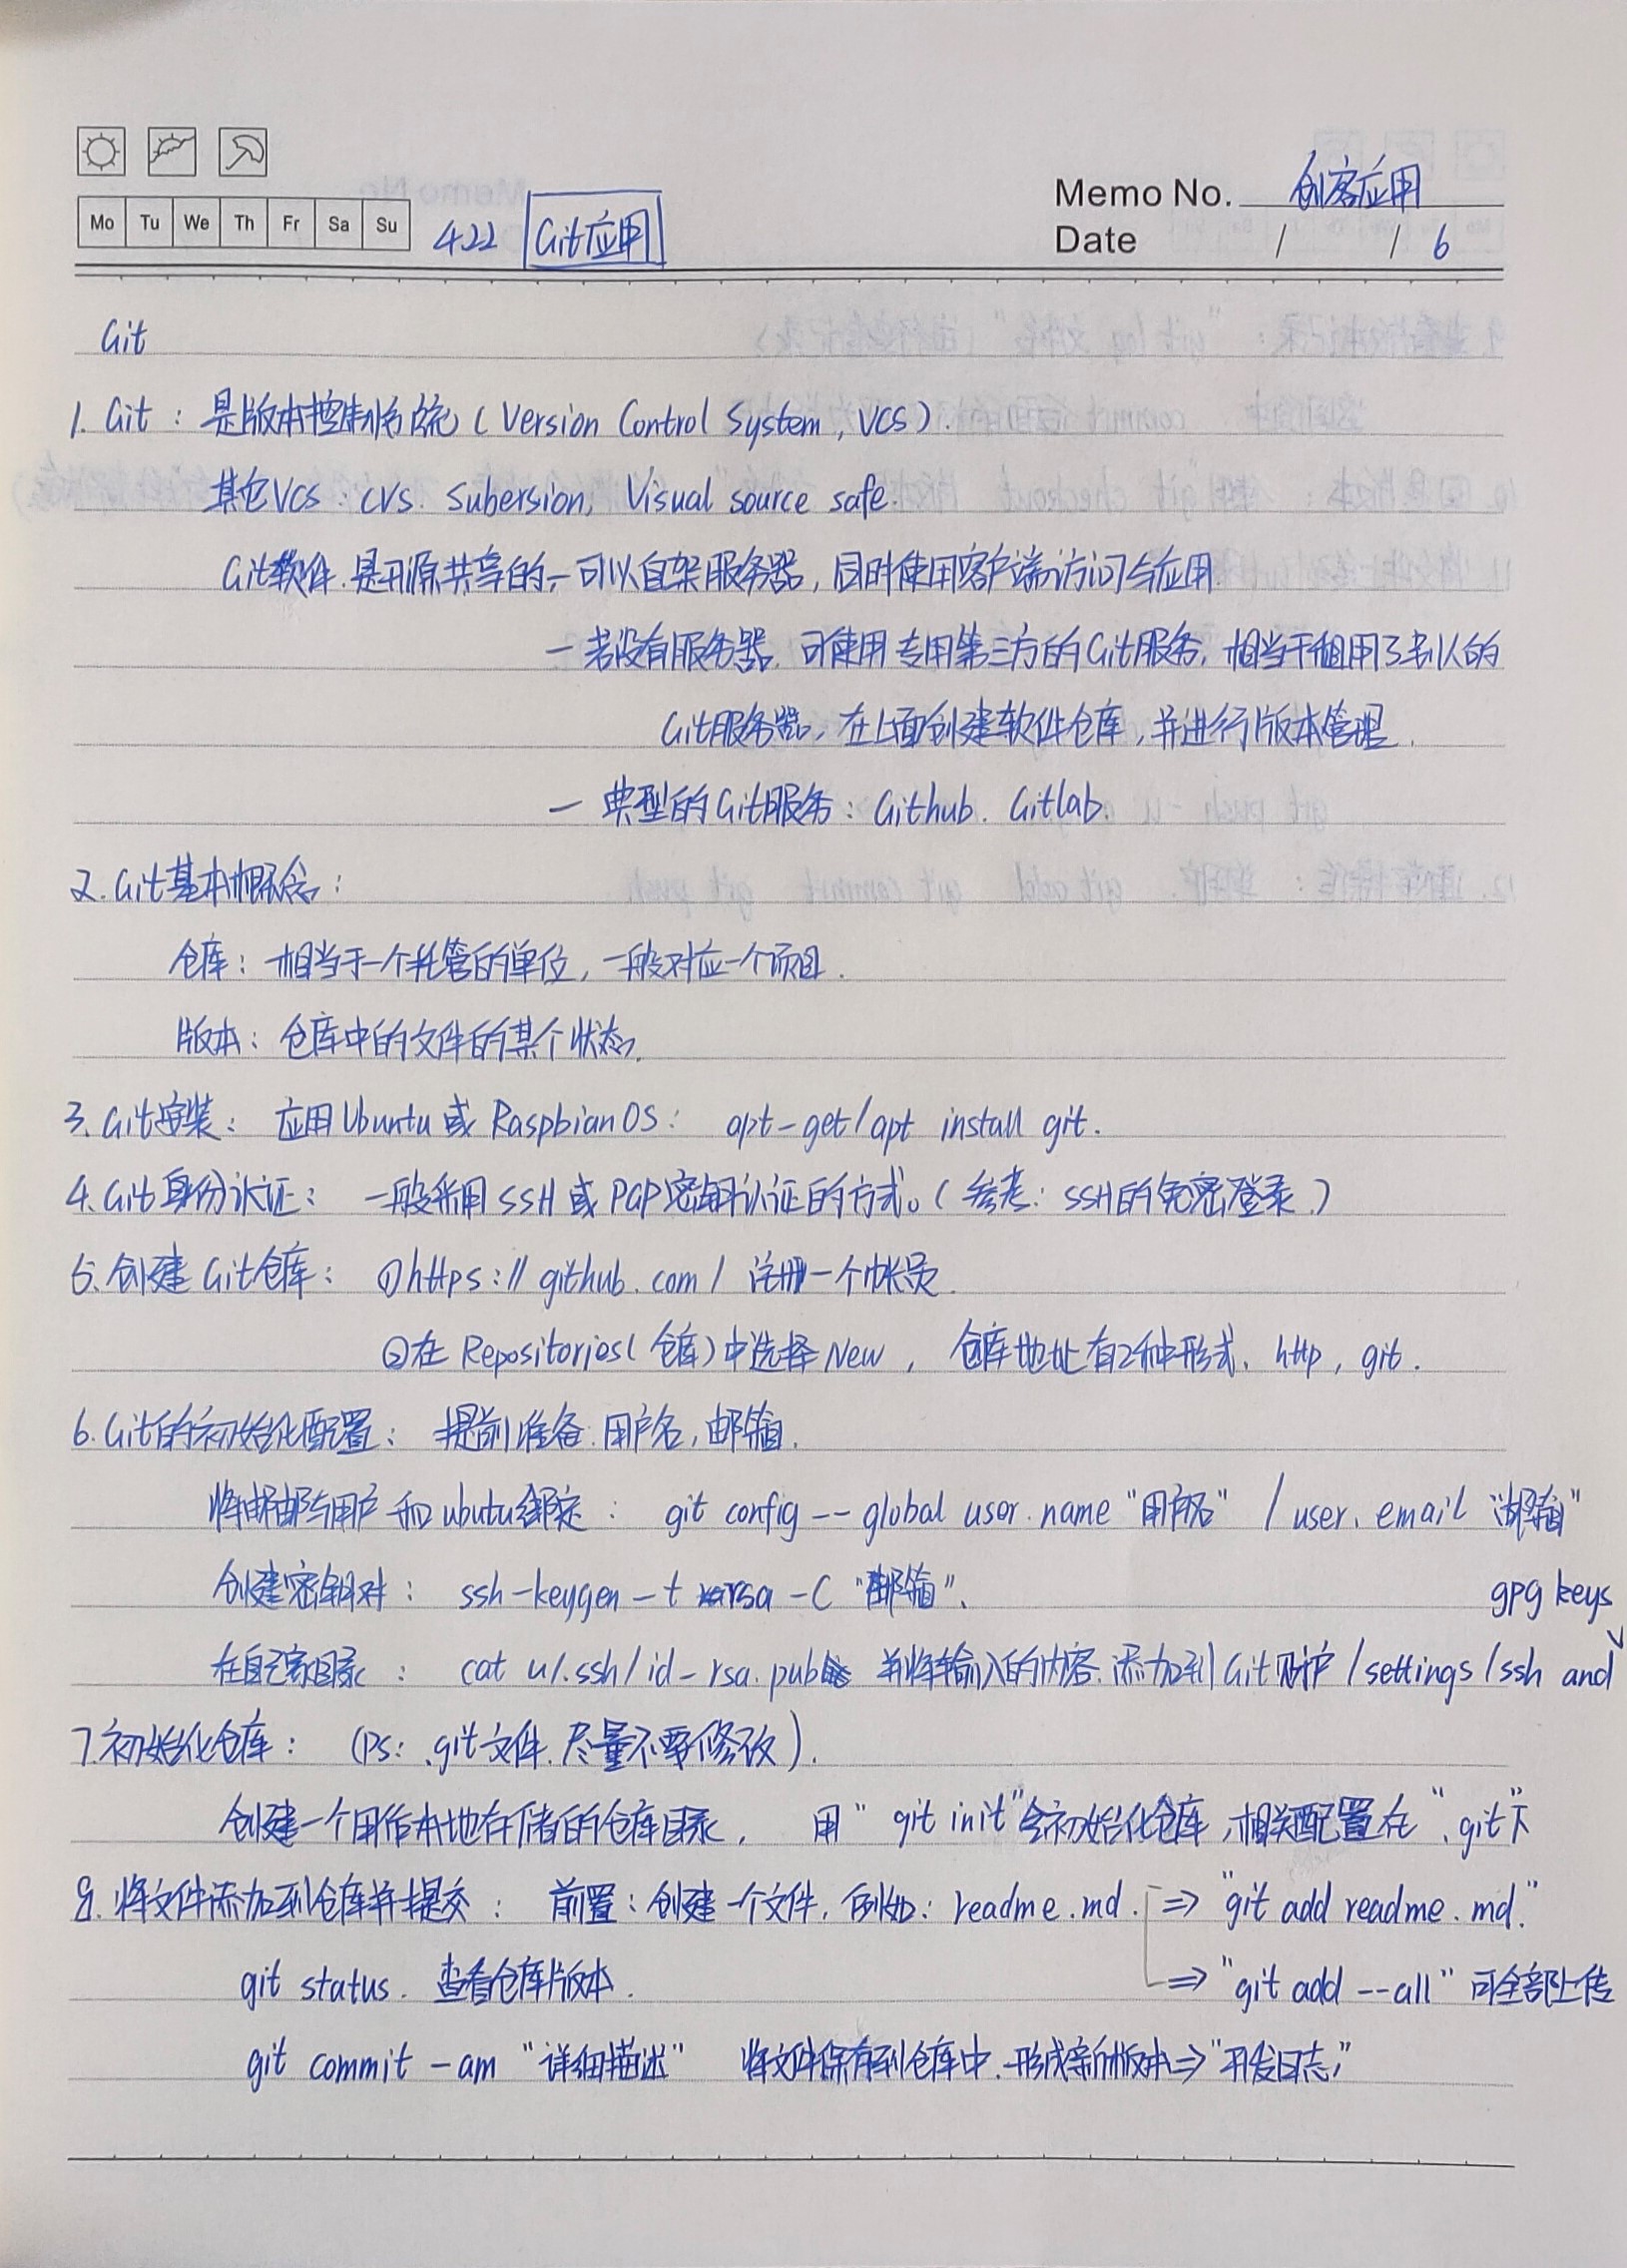 Memo No. 创客应用
Mo Tu We Th Fr Sa Su 422 Git应用
Date / / 6
Git
1. Git : 是版本控制系统 ( Version Control System , VCS ) .
其它VCS : CVS. Subersion, Visual source safe.
Git软件.是开源共享的,一可以自架服务器,同时使用客户端访问与应用.
一若没有服务器.可使用专用第三方的Git服务.相当于租用了别人的
Git服务器。在上面创建软件仓库,并进行版本管理.
一 典型的Git服务 : Github. Gitlab.
2. Git基本概念 :
仓库 : 相当于一个托管的单位,一般对应一个项目.
版本 : 仓库中的文件的某个状态.
3. Git安装 : 应用Ubuntu或RaspbianOS : apt-get/apt install git.
4. Git身份认证 : 一般采用SSH或PGP密钥认证的方式。( 参考 : SSH的免密登录.)
5. 创建Git仓库 : ①https://github.com/ 注册一个帐员.
②在Repositories(仓库)中选择New , 仓库地址有2种形式、http , git .
6. Git的初始化配置 : 提前准备.用户名,邮箱.
将邮与用户和ubutu绑定 : git config -- global user.name "用户名" / user. email "邮箱"
创建密钥对 : ssh-keygen -t rsa -C "邮箱".
gpg keys
在自己家目录 : cat u/.ssh/id-rsa.pub 并将输入的内容.添加到Git账户/settings/ssh and
7. 初始化仓库 : (Ps: .git文件.尽量不要修改).
创建一个用作本地存储的仓库目录. 用" git init"会初始化仓库,相关配置在".git下
8. 将文件添加到仓库并提交 : 前置 : 创建一个文件.例如 : readme.md. => "git add readme.md."
git status. 查看仓库版本. => "git add --all" 可全部上传
git commit -am "详细描述" 将文件保存到仓库中.形成新版本=>"开发日志"